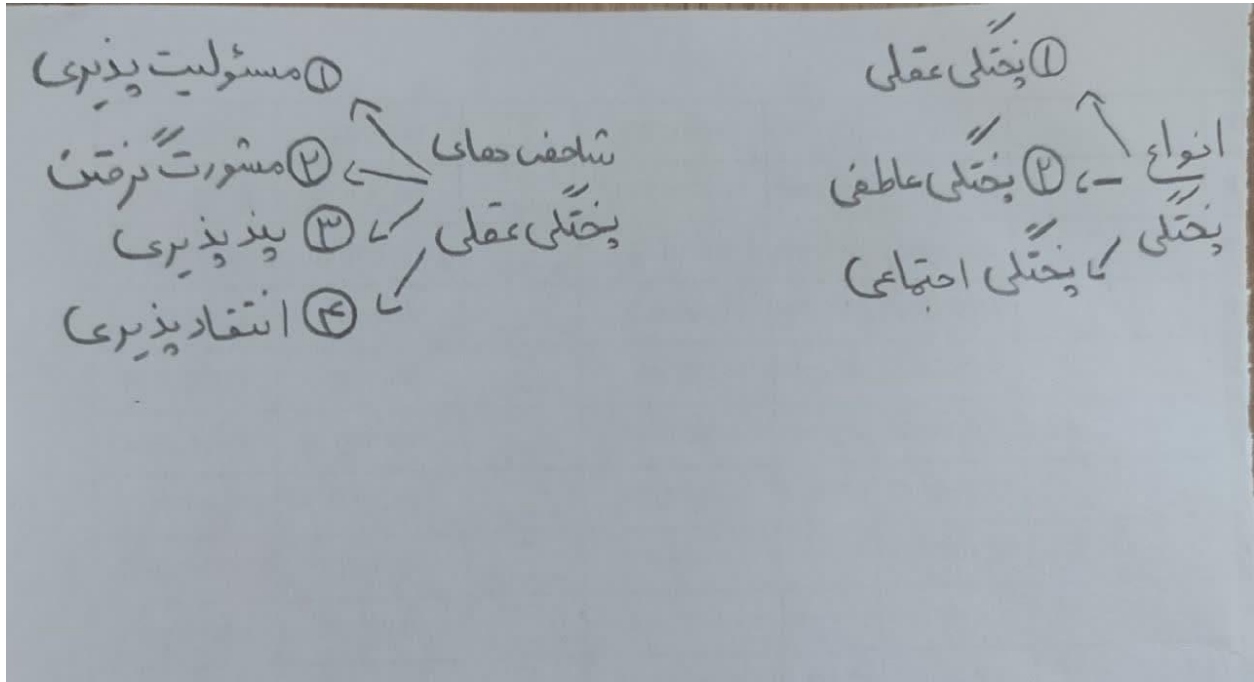 انواع پختگی
① پختگی عقلی
② پختگی عاطفی
پختگی اجتماعی
شاخص های
پختگی عقلی
① مسئولیت پذیری
② مشورت گرفتن
③ پند پذیری
④ انتقاد پذیری